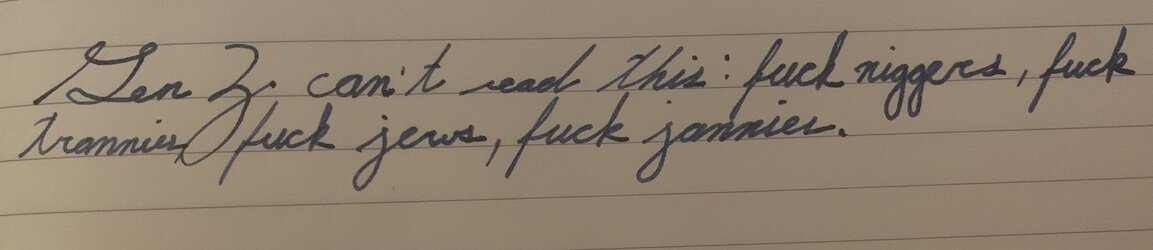 Gen Z can't read this: fuck niggers, fuck
trannies, fuck jews, fuck jannies.